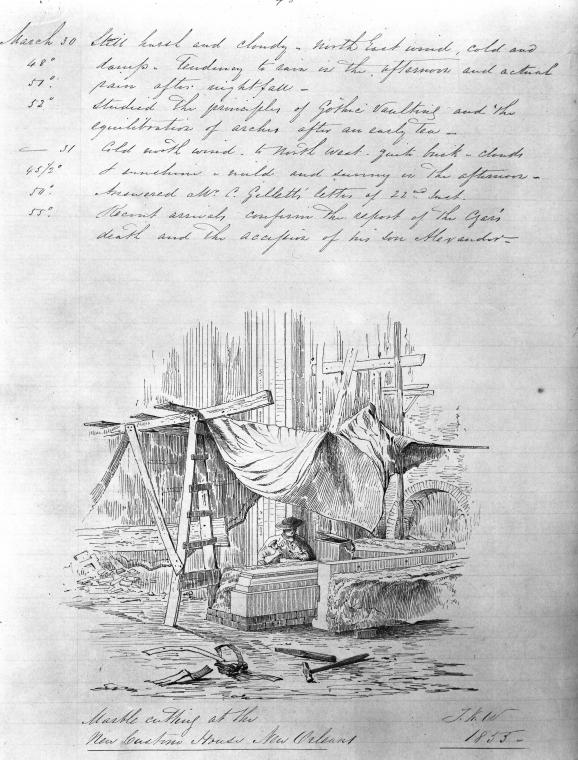 March 30 Still harsh and cloudy - North East wind, cold and
48° damp - Tendency to rain in the afternoon and actual
51° rain after nightfall -
52° Studied the principles of Gothic Vaulting and the
equilibration of arches after an early tea -
— 31 Cold north wind - to North West - quite brisk - clouds
45 1/2° & sunshine - mild and sunny in the afternoon -
50° Answered Mr. C. Gellett's letter of 22nd Inst.
55° Recent arrivals confirm the report of the Czar's
death and the accession of his son Alexander -
Marble cutting at the
New Custom House New Orleans
T. K. W
1855 -